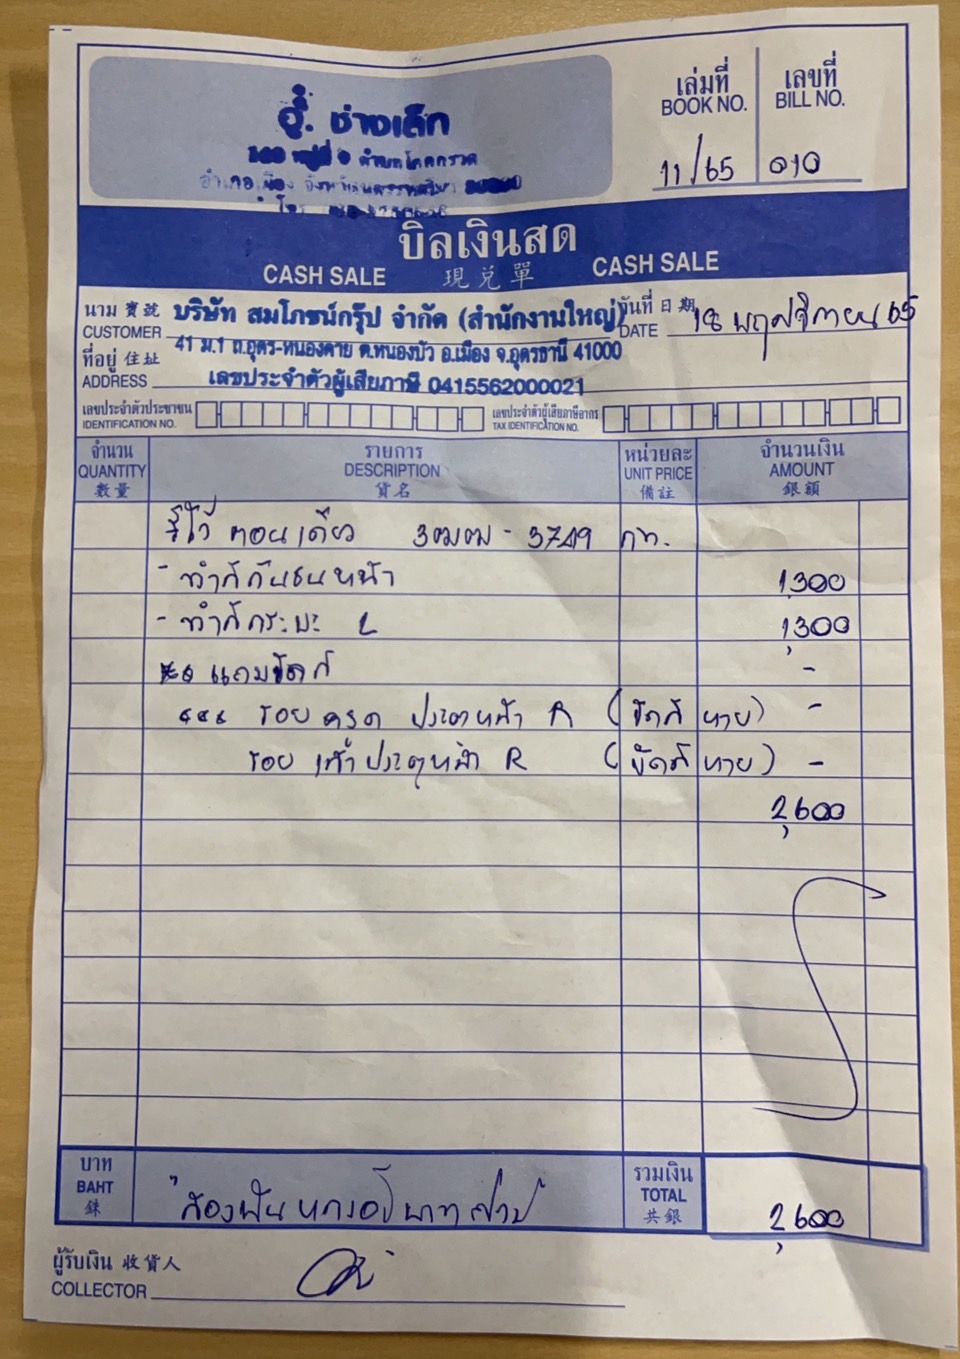 อู๋. ช่างเล็ก
หมู่ที่ ตำบลโคกกรวด
อำเภอเมือง จังหวัดนครราชสีมา
โทร
เล่มที่ เลขที่
BOOK NO. BILL NO.
11/65 010
บิลเงินสด
CASH SALE 現兌單 CASH SALE
นาม 寶號 บริษัท สมโภชน์กรุ๊ป จำกัด (สำนักงานใหญ่) วันที่ 日期
CUSTOMER DATE 18 พฤศจิกายน 65
ที่อยู่ 住址 41 ม.1 ถ.อุดร-หนองคาย ต.หนองบัว อ.เมือง จ.อุดรธานี 41000
ADDRESS เลขประจำตัวผู้เสียภาษี 0415562000021
เลขประจำตัวประชาชน เลขประจำตัวผู้เสียภาษีอากร
IDENTIFICATION NO. TAX IDENTIFICATION NO.
จำนวน รายการ หน่วยละ จำนวนเงิน
QUANTITY DESCRIPTION UNIT PRICE AMOUNT
數量 貨名 備註 銀額
รีโว้ ตอนเดียว 3ฒฒ - 3749 กท.
- ทำสีกันชนหน้า 1,300
- ทำสีกระบะ L 1,300
แถมขัดสี -
รอยครูด ประตูหน้า R (ขัดสี หาย) -
รอย ประตูหน้า R (ขัดสี หาย) -
2,600
บาท รวมเงิน
BAHT สองพันหกร้อยบาทถ้วน TOTAL 2,600
銖 共銀
ผู้รับเงิน 收貨人
COLLECTOR